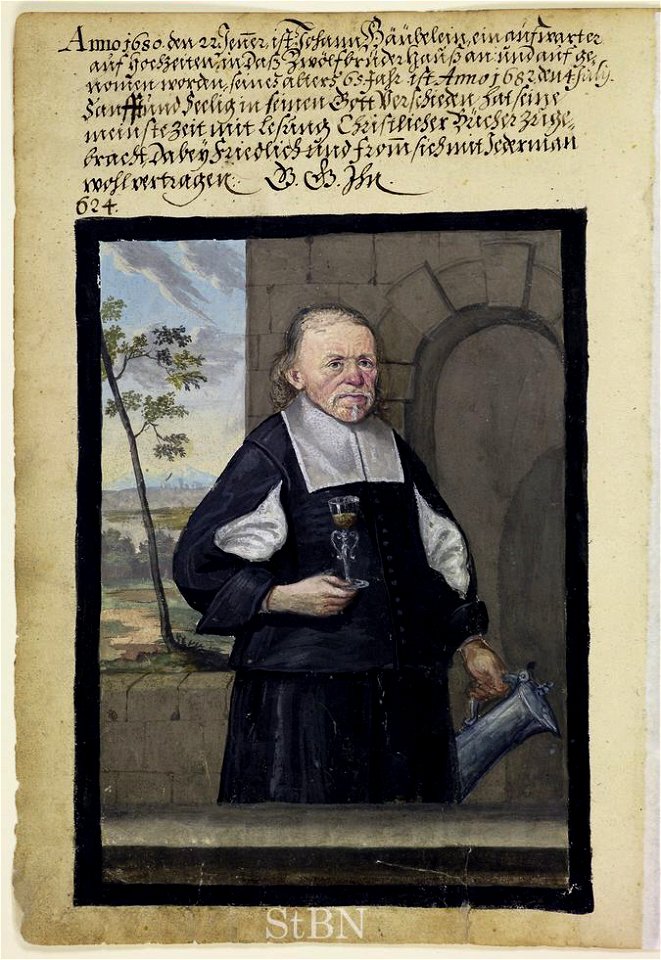 Anno 1680. den 22. Jener, ist Johann Häübelein, ein aufwarter
auf Hochzeiten, in daß Zwölfbrüder Hauß an: und auf ge-
nomen worden, seines alters 65 Jahr ist Anno 1682 den 4 July.
Sanfft und Seelig in seinen Gott Verschieden, hat seine
meinste Zeit mit lesung Christlicher Bücher zuge-
bracht, Dabey Friedlich und From sich mit Jederman
wohl vertragen. G. G. Ihn
624.
StBN